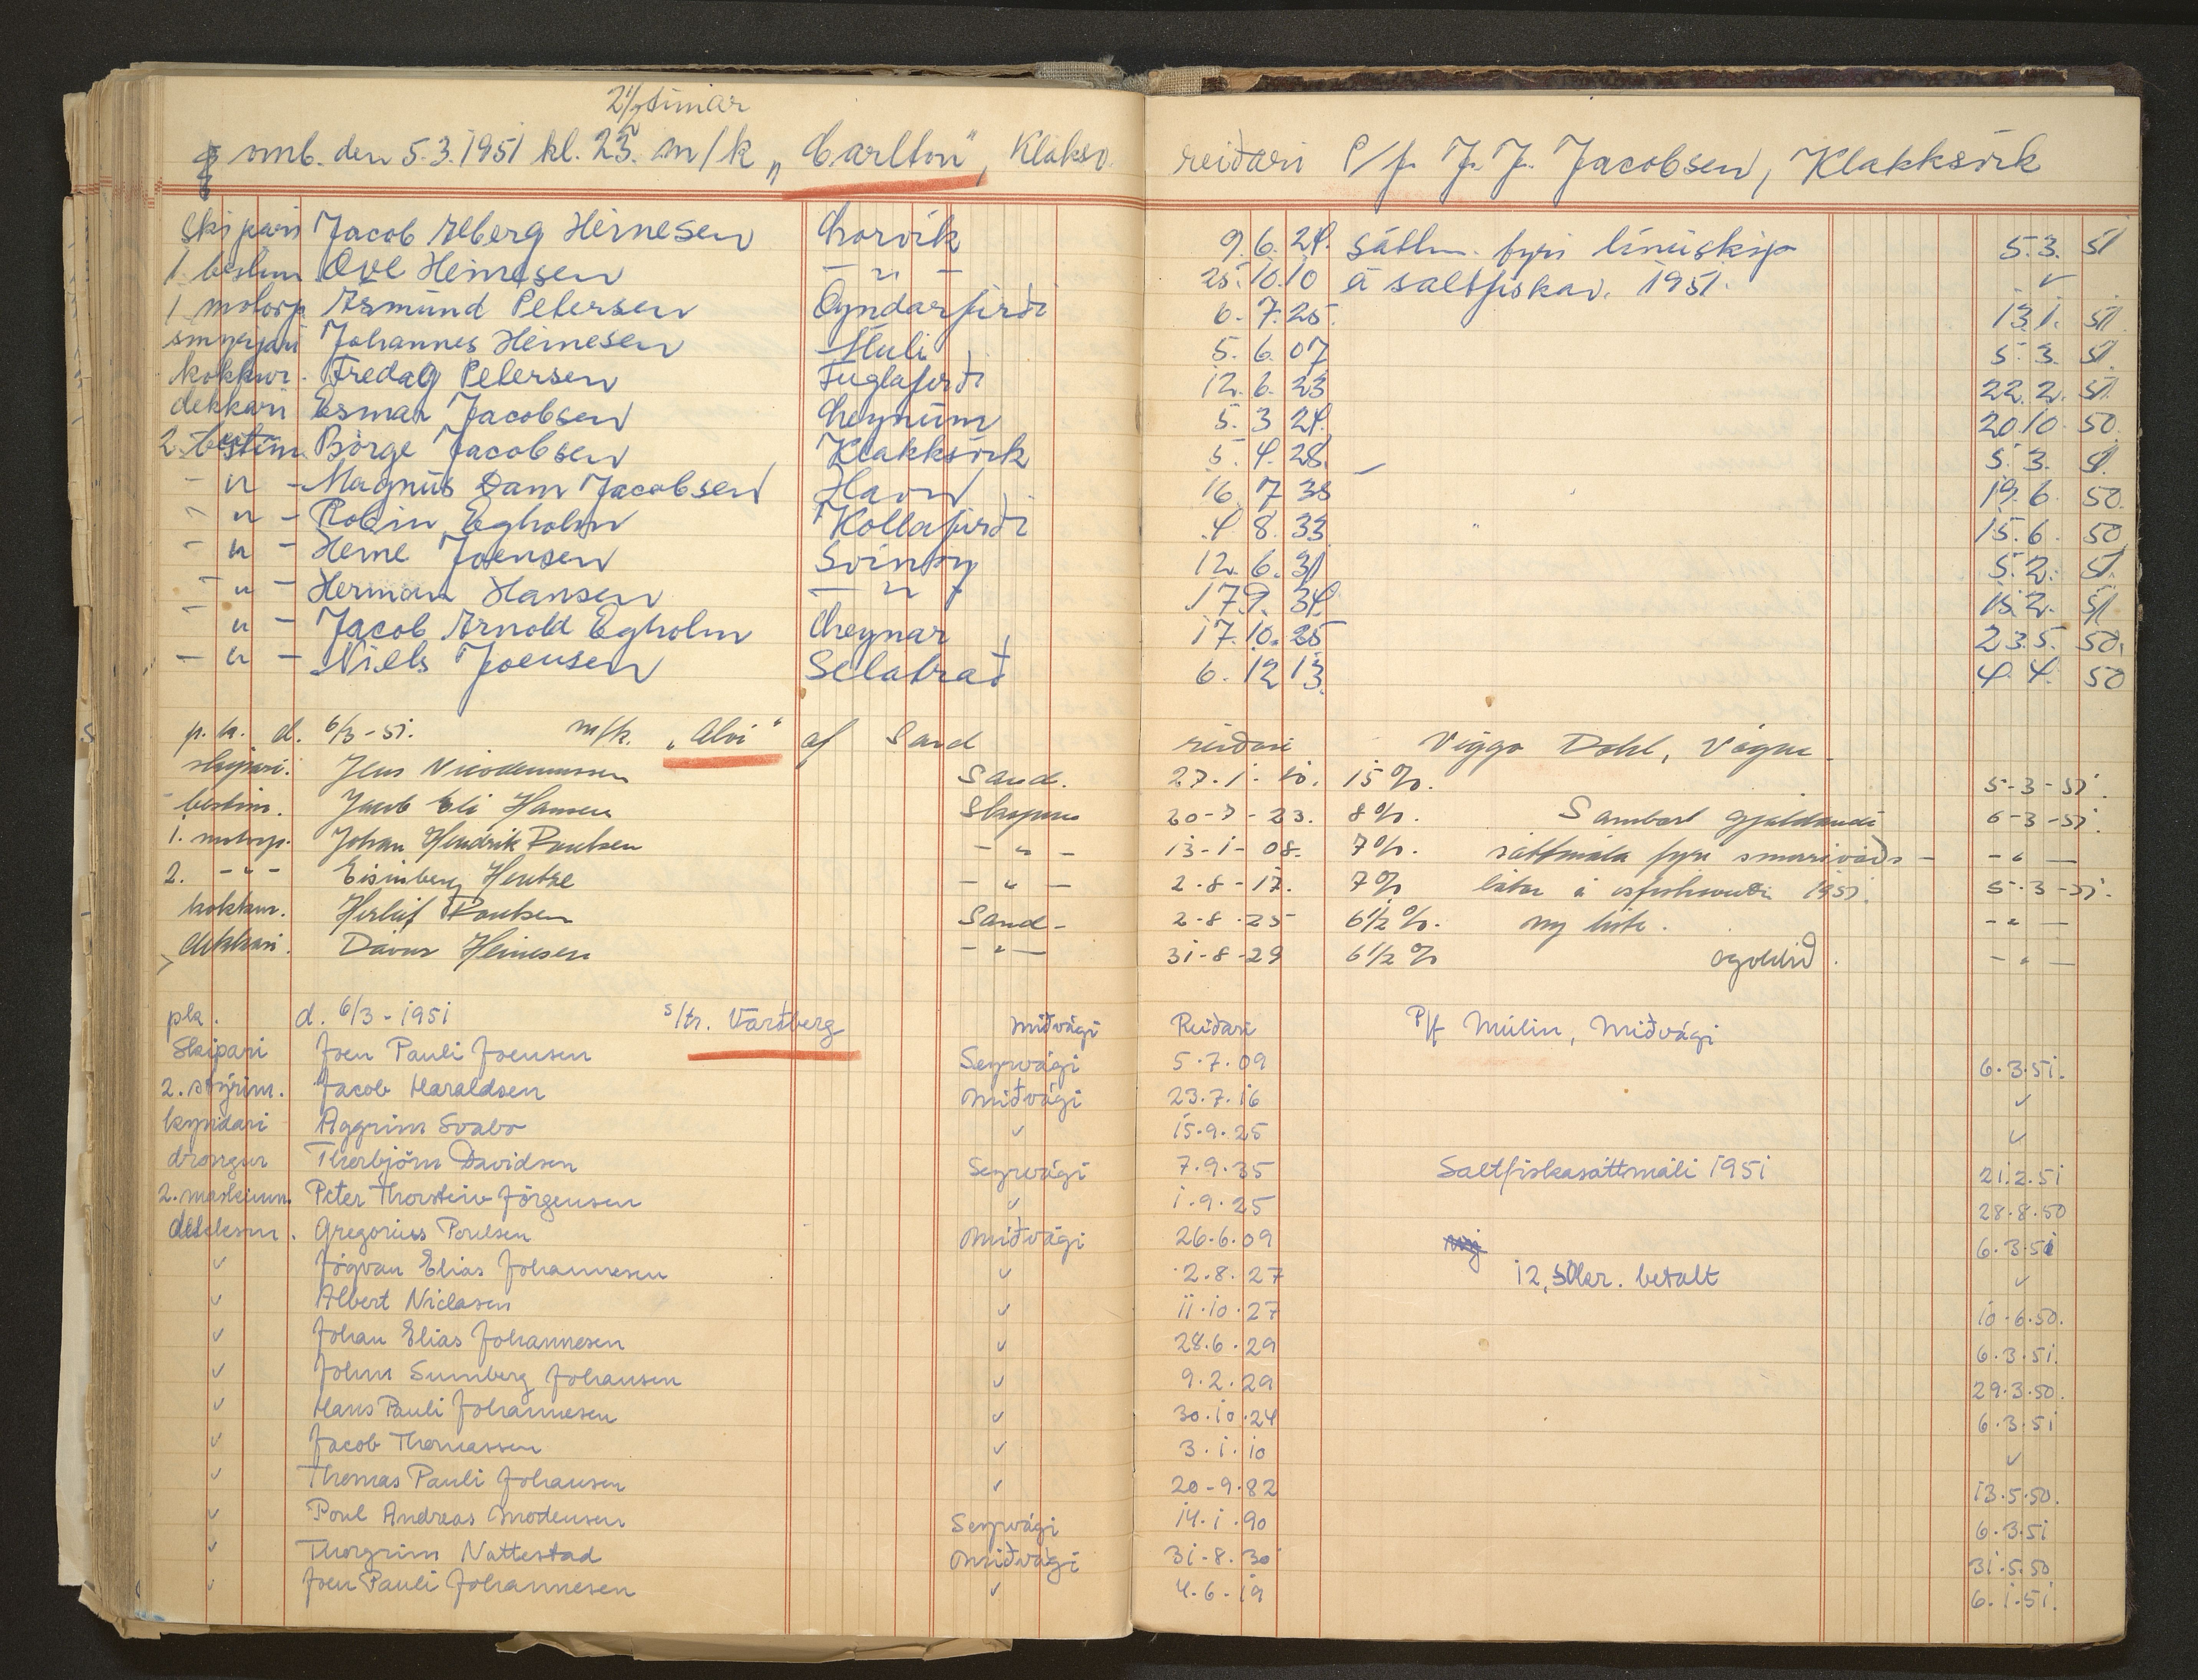 2½ tímar
omb. den 5.3.1951 kl. 23. m/k „Carlton", Klaksv. reiðari P/f. J. J. Jacobsen, Klakksvík
skipari Jacob Elberg Heinesen Norvík 9. 6. 24. sáttm. fyri línuskip 5. 3. 51
1. bestm Ove Heinesen — " — 25. 10. 10 á saltfiskav. 1951. ✓
1 motorp. Asmund Petersen Oyndarfirði 6. 7. 25. 13. 1. 51.
smyrjari Johannes Heinesen Múli 5. 6. 07 5. 3. 51.
kokkur. Fredag Petersen Fuglafirði 12. 6. 23 22. 2. 51.
dekkari Esmar Jacobsen 5. 3 24. 20. 10. 50.
2. bestim. Börge Jacobsen Klakksvík 5. 4. 28. 5. 3. 51.
- " - Magnus Dam Jacobsen Havn 16. 7 35 19. 6. 50.
- " - Robin Egholm Kollafirði 4 8. 33 15. 6. 50
- " - Heine Joensen Svínoy 12. 6. 31 5. 2. 51.
- " - Herman Hansen — " — 17. 9. 34. 15. 2. 51
- " - Jacob Arnold Egholm 17. 10. 25 23. 5. 50.
- " - Niels Joensen Selatrað 6. 12 13. 4. 4. 50
p. k. d. 6/3-51. m/k. „Alvi" af Sand reiðari Viggo Dahl, Vágur
skipari. Jens Nicodemussen Sand. 27. 1. 10. 15 %. 5-3-51.
bestim. Jacob Eli Hansen Skopun 20-7-23. 8 %. Sambært gjaldandi 6-3-51.
1. motorp. Johan Hendrik Poulsen - " - 13-1-08. 7 %. sáttmála fyri smærri váða- - " —
2. - " - Eisinberg Hentze - " - 2-8-17. 7 % bátar á 1951. 5-3-51.
kokkur. Herluf Poulsen Sand- 2-8-25 6½ %. ny liste. - " —
dekkari. Dávur Heinesen - " — 31-8-29 6½ % ogoldið. - " —
pk. d. 6/3-1951 s/tr. Varðberg Miðvági Reiðari P/f Múlin, Miðvági
Skipari Joen Pauli Joensen Seyrvági 5.7.09 6.3.51.
2. stýrim. Jacob Haraldsen Miðvági 23.7.16 ✓
kyndari Aggrim Svabo ✓ 15.9.25 ✓
drongur Thorbjörn Davidsen Seyrvági 7.9.35 Saltfiskasáttmáli 1951 21.2.51
2. maskinm. Peter Thorstein Jörgensen ✓ 1.9.25 28.8.50
dekksm. Gregorius Poulsen Miðvági 26.6.09 6.3.51
✓ Jógvan Elias Johannesen ✓ 2.8.27 12,50kr. betalt ✓
✓ Albert Niclasen ✓ 11.10.27 10.6.50.
✓ Johan Elias Johannesen ✓ 28.6.29 6.3.51.
✓ Johan Sumberg Johansen ✓ 9.2.29 29.3.50.
✓ Hans Pauli Johannesen ✓ 30.10.24 6.3.51
✓ Jacob Thomassen ✓ 3.1.10 ✓
✓ Thomas Pauli Johansen ✓ 20-9.82 13.5.50.
✓ Poul Andreas Mortensen Seyrvági 14.1.90 6.3.51
✓ Thorgrim Nattestad Miðvági 31-8.30 31.5.50
✓ Joen Pauli Johannesen ✓ 4-6-19 6.1.51.